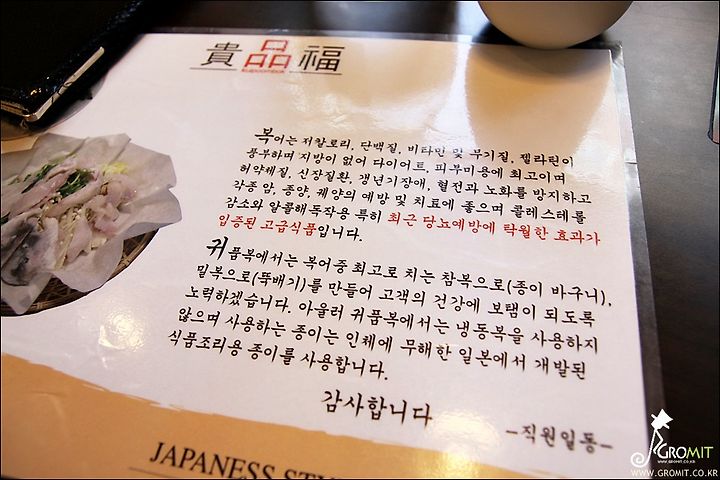 貴品福
복어는 저칼로리, 단백질, 비타민 및 무기질, 젤라틴이
풍부하며 지방이 없어 다이어트, 피부미용에 최고이며
허약체질, 신장질환, 갱년기장애, 혈전과 노화를 방지하고
각종 암, 종양, 궤양의 예방 및 치료에 좋으며 콜레스테롤
감소와 알콜해독작용 특히 최근 당뇨예방에 탁월한 효과가
입증된 고급식품입니다.
귀품복에서는 복어중 최고로 치는 참복으로(종이 바구니),
밀복으로(뚝배기)를 만들어 고객의 건강에 보탬이 되도록
노력하겠습니다. 아울러 귀품복에서는 냉동복을 사용하지
않으며 사용하는 종이는 인체에 무해한 일본에서 개발된
식품조리용 종이를 사용합니다.
감사합니다
-직원일동-
JAPANESS
GROMIT
WWW.GROMIT.CO.KR